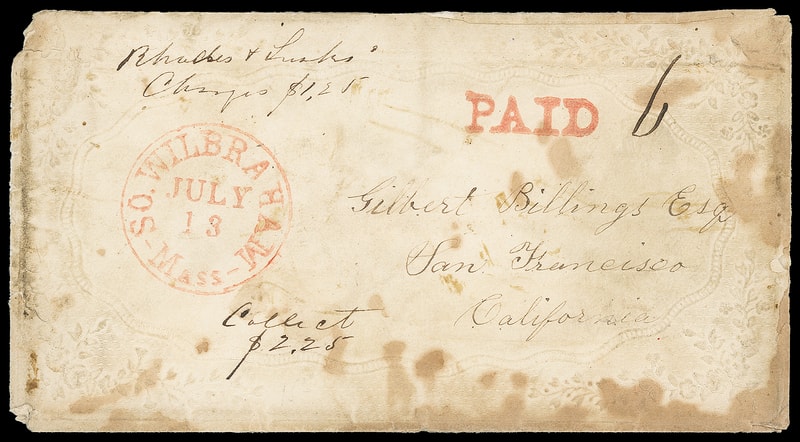 Rhodes & Lusks'
Charges $1,25
PAID 6
SO. WILBRAHAM
JULY
13
MASS
Gilbert Billings Esq
San Francisco
California
Collect
$2,25